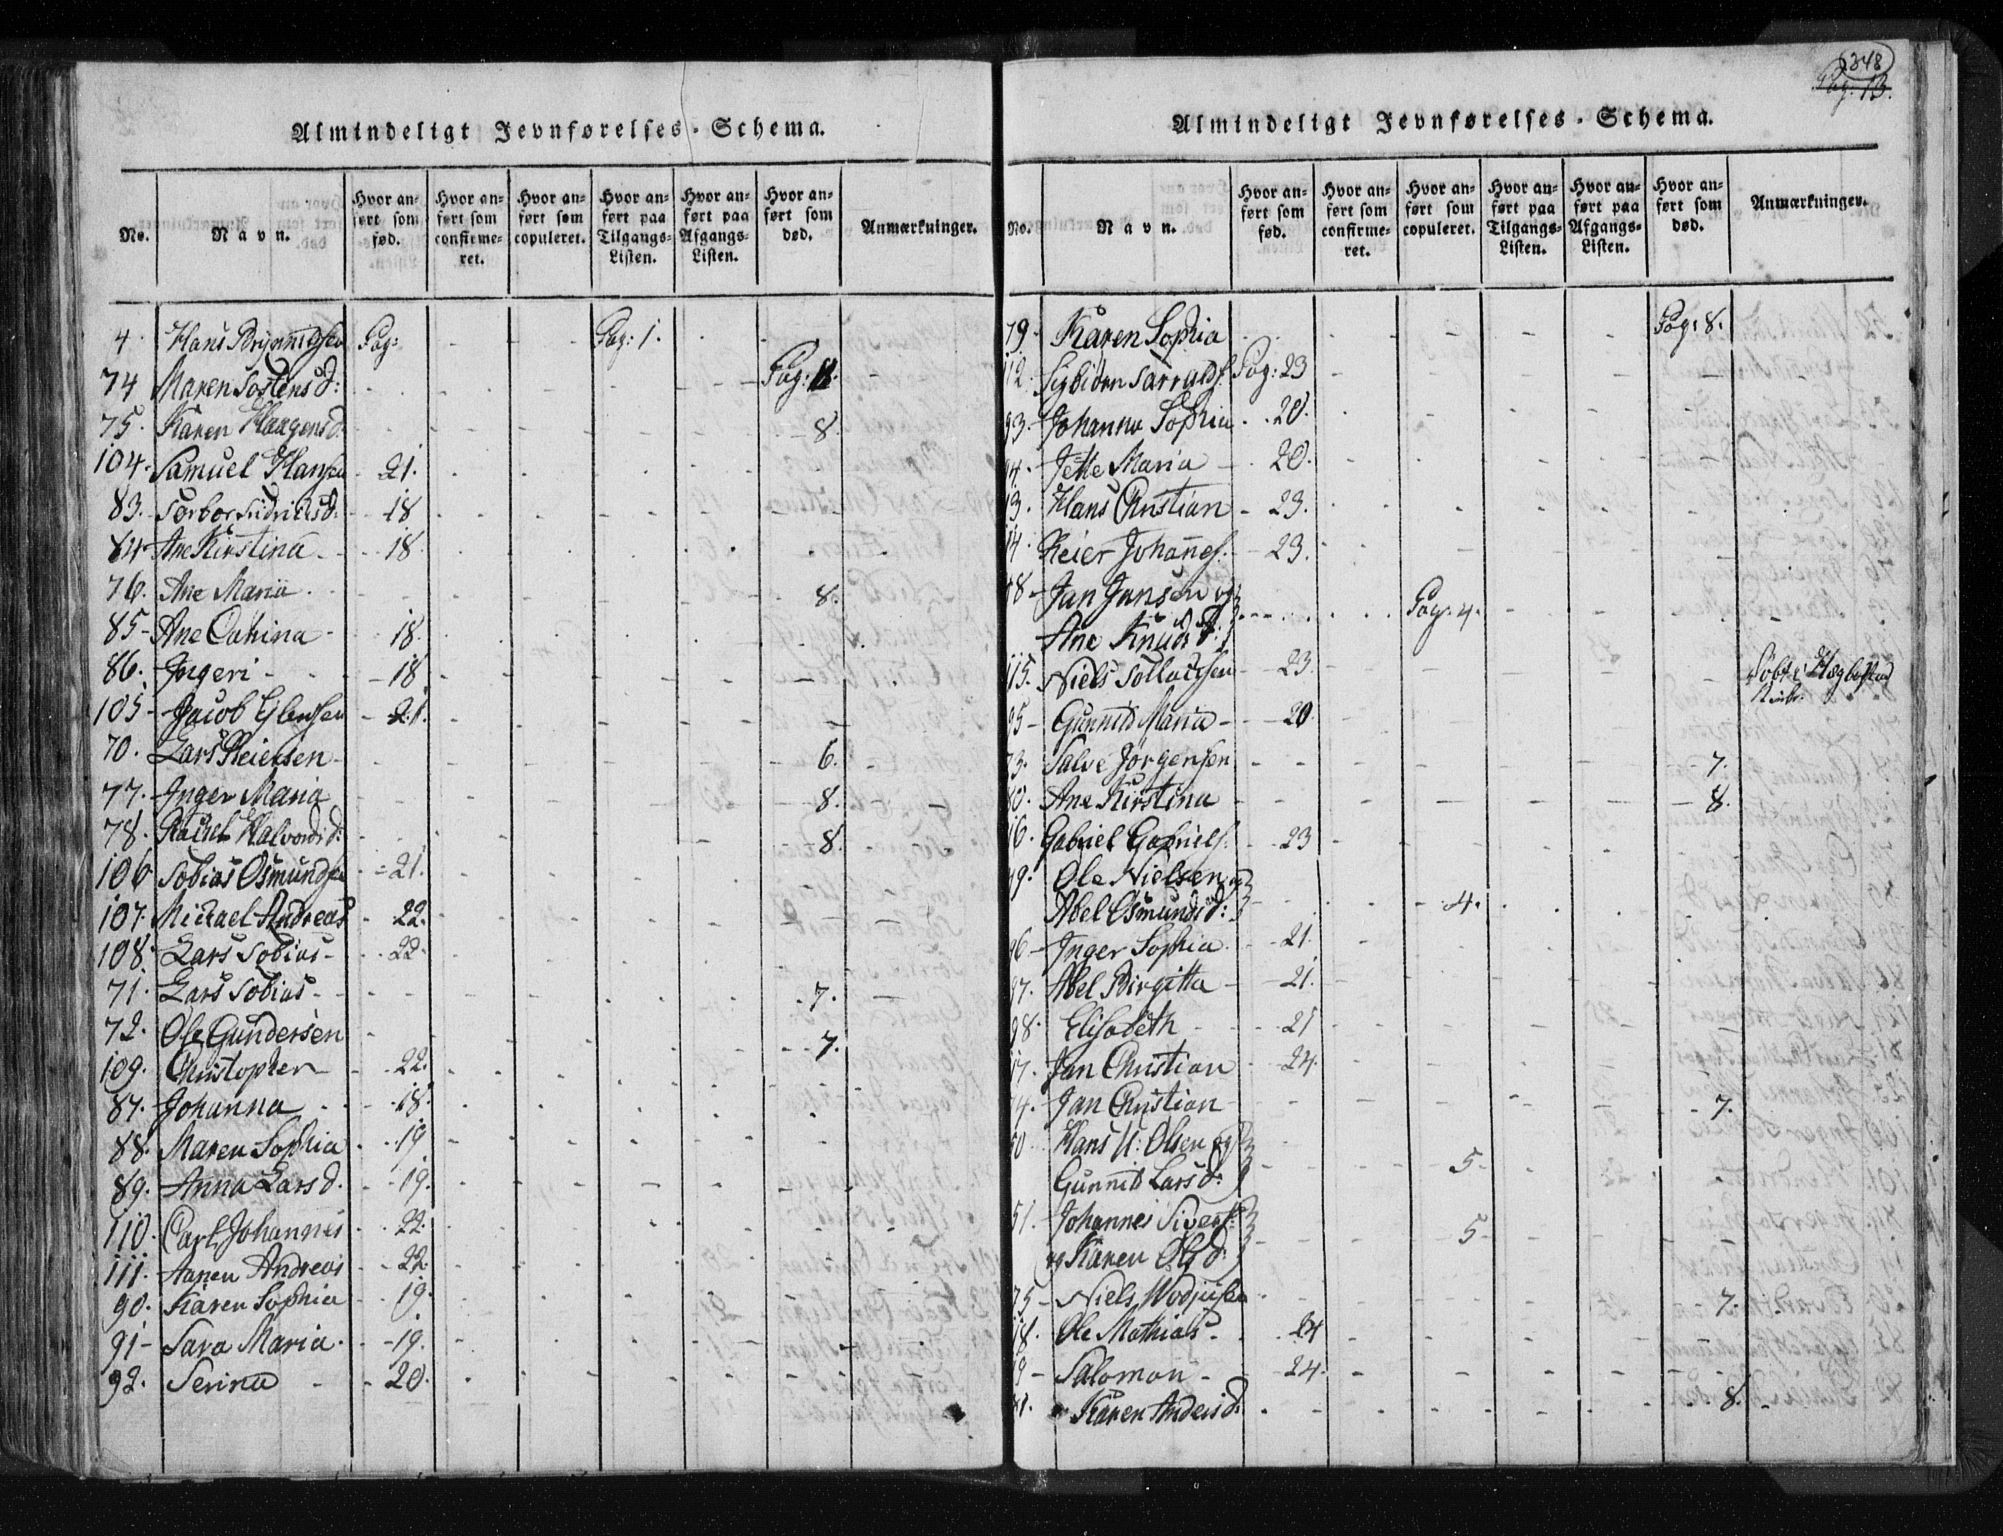 348
Pag: 13.
Almindeligt Jevnførelses-Schema.
No. | Navn. | Hvor anført som fød. | Hvor anført som confirmeret. | Hvor anført som copuleret. | Hvor anført paa Tilgangs-Listen. | Hvor anført paa Afgangs-Listen. | Hvor anført som død. | Anmærkninger.
4. Hans Brynnildsen Pag: Pag: 1.
74 Maren Tostensd: Pag:
75. Karen Haagensd. 8.
104. Samuel Hansen 21.
83. 18
84 Ane Kirstina 18.
76. Ane Maria 8.
85 Ane Cathina 18.
86. Ingeri 18
105 Jacob 21.
70. Lars Reiersen 6.
77. Inger Maria 8.
78. Rachel Halvorsd: 8.
106 Tobias Osmundsen 21.
107. Michael Andreas 22.
108. Lars Tobias 22.
71. Lars Tobias 7.
72. Ole Gundersen 7.
109. Christopher 22.
87. Johanna 18.
88. Maren Sophia 19
89. Anna Larsd. 19.
110. Carl Johannes 22.
111. Aanen Andreas 22.
90. Karen Sophia 19.
91 Sara Maria 19.
92. Serina 20.
Almindeligt Jevnførelses-Schema.
No. | Navn. | Hvor anført som fød. | Hvor anført som confirmeret. | Hvor anført som copuleret. | Hvor anført paa Tilgangs-Listen. | Hvor anført paa Afgangs-Listen. | Hvor anført som død. | Anmærkninger.
79. Karen Sophia Pag: 8.
112. Pag: 23
93. Johanna Sophia 20.
94. Jette Maria 20.
13. Hans Christian 23.
14. Reier Johannes. 23.
48 Jan Jansen og
Ane Knudsd: Pag: 4.
115. Niels Tollachsen 23. Døbt i Hægbostad
Kirke.
95 Gunnild Maria 20.
73. Salve Jørgensen 7.
80. Ane Kirstina 8.
16. Gabriel Gabriels. 23
49. Ole Nielsen og
Abel Osmundsd: 4.
96 Inger Sophia 21.
97. Abel Birgitta 21.
98. Elisabeth 21
17. Jan Christian 24.
74. Jan Christian 7.
50 Hans N: Olsen og
Gunnild Larsd: 5.
51. Johannes Sivers:
og Karen Olsd: 5
75 Niels 7.
18. Ole Mathias 24
19 Salomon 24.
81. Karen Andersd. 8.